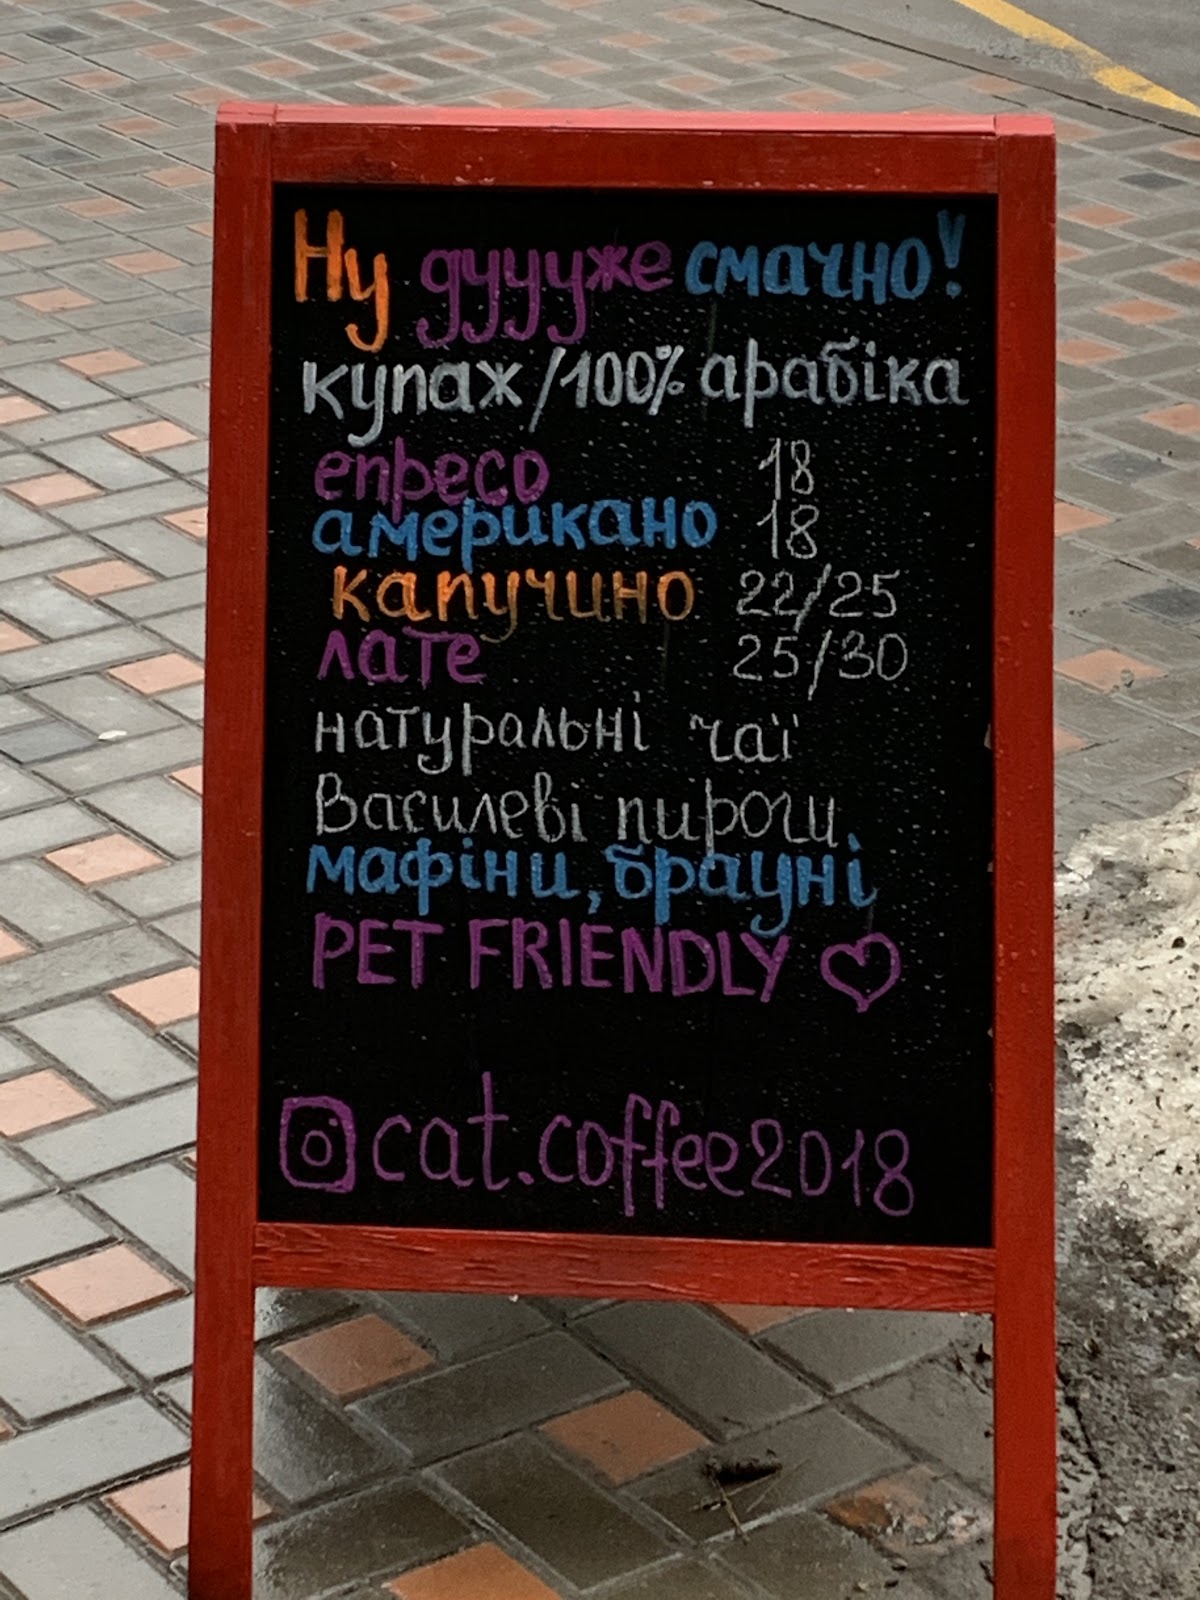 Ну дуууже смачно!
купаж/100% арабіка
епресо 18
американо 18
капучино 22/25
лате 25/30
натуральні чаї
Василеві пироги
мафіни, брауні
PET FRIENDLY ♡
cat.coffee2018